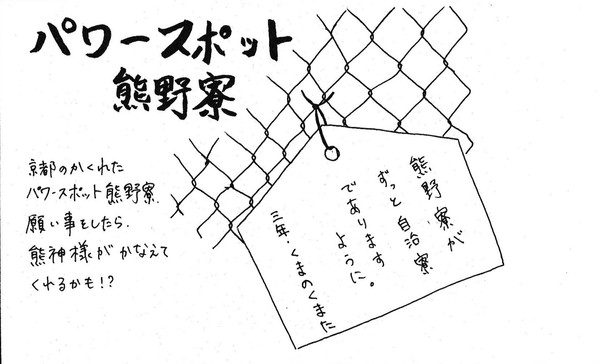 パワースポット
熊野寮
京都のかくれた
パワースポット熊野寮.
願い事をしたら.
熊神様がかなえて
くれるかも!?
熊野寮が
ずっと自治寮
であります
ように。
三年.くまのくまた